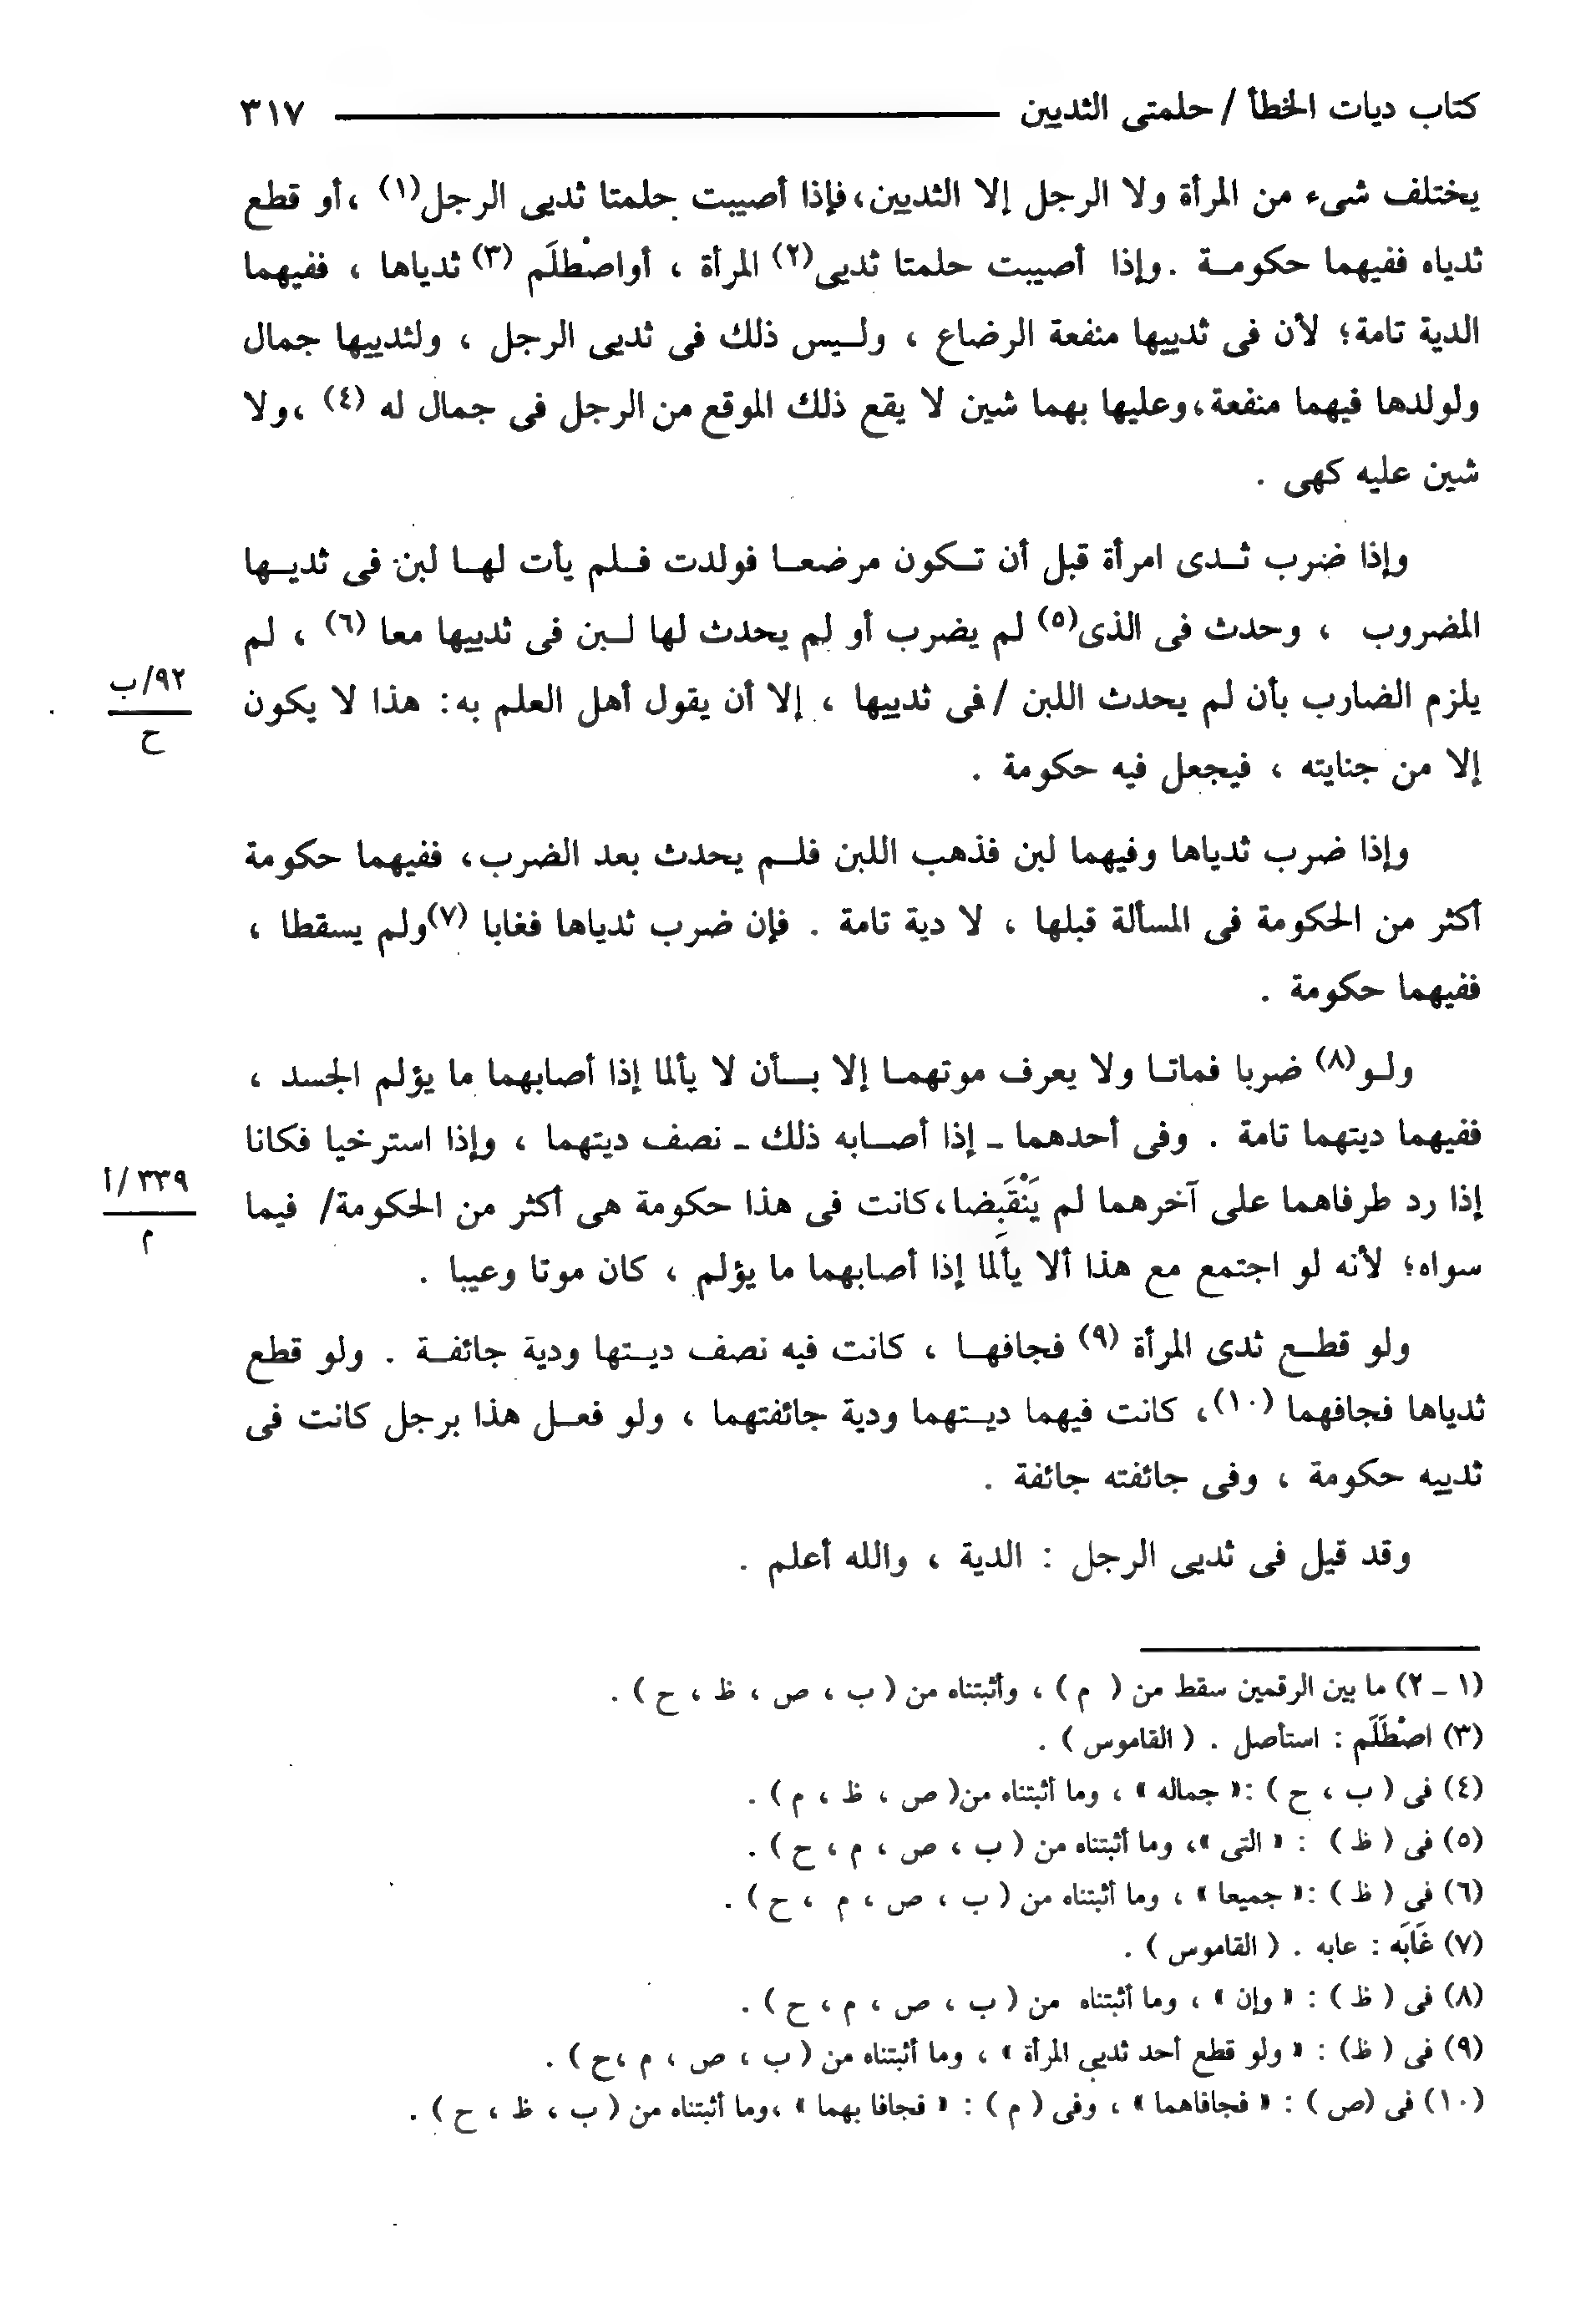 كتاب ديات الخطأ / حلمتى الثديين ٣١٧
يختلف شىء من المرأة ولا الرجل إلا الثديين، فإذا أصيبت حلمتا ثديى الرجل(١) ، أو قطع
ثدياه ففيهما حكومـة . وإذا أصيبت حلمتا ثديى(٢) المرأة ، أواصْطلَم (٣) ثدياها ، ففيهما
الدية تامة؛ لأن فى ثدييها منفعة الرضاع ، ولـيس ذلك فى ثديى الرجل ، ولثدييها جمال
ولولدها فيهما منفعة، وعليها بهما شين لا يقع ذلك الموقع من الرجل فى جمال له (٤) ، ولا
شين عليه كهى .
وإذا ضرب ثـدى امرأة قبل أن تـكون مرضعـا فولدت فـلم يأت لهـا لبن فى ثديـها
المضروب ، وحدث فى الذى(٥) لم يضرب أو لم يحدث لها لـبن فى ثدييها معا (٦) ، لم
يلزم الضارب بأن لم يحدث اللبن / فى ثدييها ، إلا أن يقول أهل العلم به: هذا لا يكون
٩٢/ب
ح
إلا من جنايته ، فيجعل فيه حكومة .
وإذا ضرب ثدياها وفيهما لبن فذهب اللبن فلـم يحدث بعد الضرب، ففيهما حكومة
أكثر من الحكومة فى المسألة قبلها ، لا دية تامة . فإن ضرب ثدياها فغابا (٧)ولم يسقطا ،
ففيهما حكومة .
ولـو(٨) ضربا فماتـا ولا يعرف موتهمـا إلا بـأن لا يألما إذا أصابهما ما يؤلم الجسد ،
ففيهما ديتهما تامة . وفى أحدهما ـ إذا أصـابه ذلك ـ نصف ديتهما ، وإذا استرخيا فكانا
إذا رد طرفاهما على آخرهما لم يَنْقَبِضا، كانت فى هذا حكومة هى أكثر من الحكومة/ فيما
٣٣٩/أ
م
سواه؛ لأنه لو اجتمع مع هذا ألا يألما إذا أصابهما ما يؤلم ، كان موتا وعيبا .
ولو قطـع ثدى المرأة (٩) فجافهـا ، كانت فيه نصف ديـتها ودية جائفـة . ولو قطع
ثدياها فجافهما (١٠)، كانت فيهما ديـتهما ودية جائفتهما ، ولو فعـل هذا برجل كانت فى
ثدييه حكومة ، وفى جائفته جائفة .
وقد قيل فى ثديى الرجل : الدية ، والله أعلم .
(١ ـ ٢) ما بين الرقمين سقط من ( م ) ، وأثبتناه من ( ب ، ص ، ظ ، ح ) .
(٣) اصْطَلَم : استأصل . ( القاموس ) .
(٤) فى ( ب ، ح ) :« جماله » ، وما أثبتناه من( ص ، ظ ، م ) .
(٥) فى ( ظ ) : « التى »، وما أثبتناه من ( ب ، ص ، م ، ح ) .
(٦) فى ( ظ ) :« جميعا » ، وما أثبتناه من ( ب ، ص ، م ، ح ) .
(٧) غَابَه : عابه . ( القاموس ) .
(٨) فى ( ظ ) : « وإن » ، وما أثبتناه من ( ب ، ص ، م ، ح ) .
(٩) فى ( ظ) : « ولو قطع أحد ثديى المرأة » ، وما أثبتناه من ( ب ، ص ، م ،ح ) .
(١٠) فى (ص ) : « فجافاهما » ، وفى ( م ) : « فجافا بهما » ،وما أثبتناه من ( ب ، ظ ، ح ) .